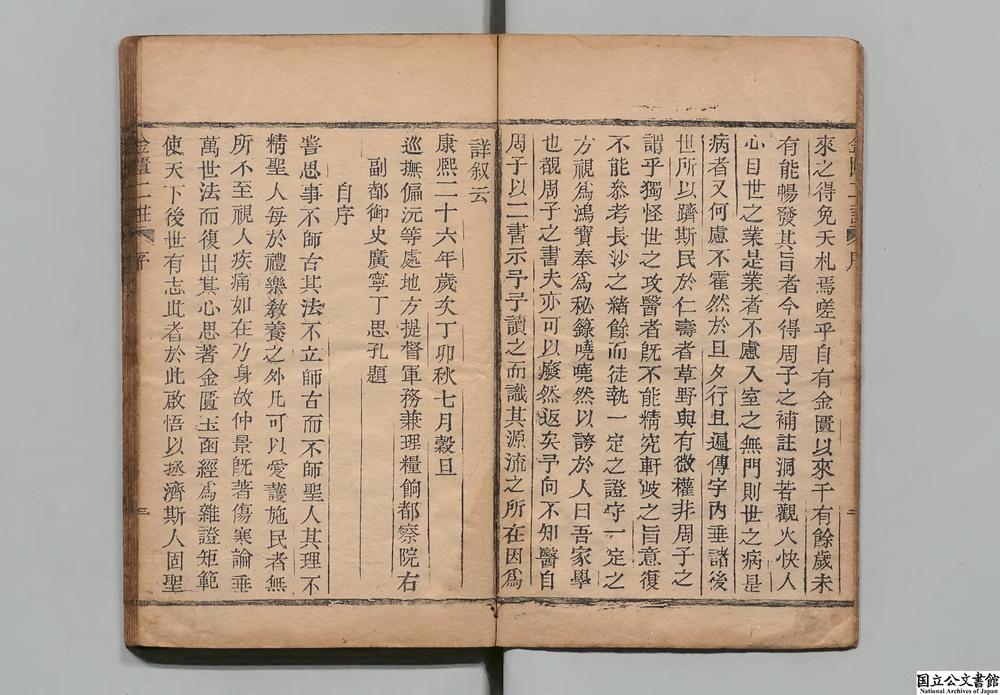 來之得免夭札焉嗟乎自有金匱以來千有餘歲未
有能暢發其旨者今得周子之補註洞若觀火快人
心目世之業是業者不慮入室之無門則世之病是
病者又何慮不霍然於旦夕行且遍傳宇內垂諸後
世所以躋斯民於仁壽者草野與有微權非周子之
謂乎獨怪世之攻醫者旣不能精究軒岐之旨意復
不能叅考長沙之緒餘而徒執一定之證守一定之
方視爲鴻寶奉爲秘錄嘵嘵然以誇於人曰吾家學
也觀周子之書夫亦可以廢然返矣予向不知醫自
周子以二書示予予讀之而識其源流之所在因爲
詳叙云
康熙二十六年歲次丁卯秋七月穀旦
巡撫偏沅等處地方提督軍務兼理糧餉都察院右
副都御史廣寧丁思孔題
自序
嘗思事不師古其法不立師古而不師聖人其理不
精聖人每於禮樂敎養之外凡可以愛護施民者無
所不至視人疾痛如在乃身故仲景旣著傷寒論垂
萬世法而復出其心思著金匱玉函經爲雜證矩範
使天下後世有志此者於此啟悟以拯濟斯人固聖
金匱二註 序
二
金匱二註 序
三
国立公文書館
National Archives of Japan